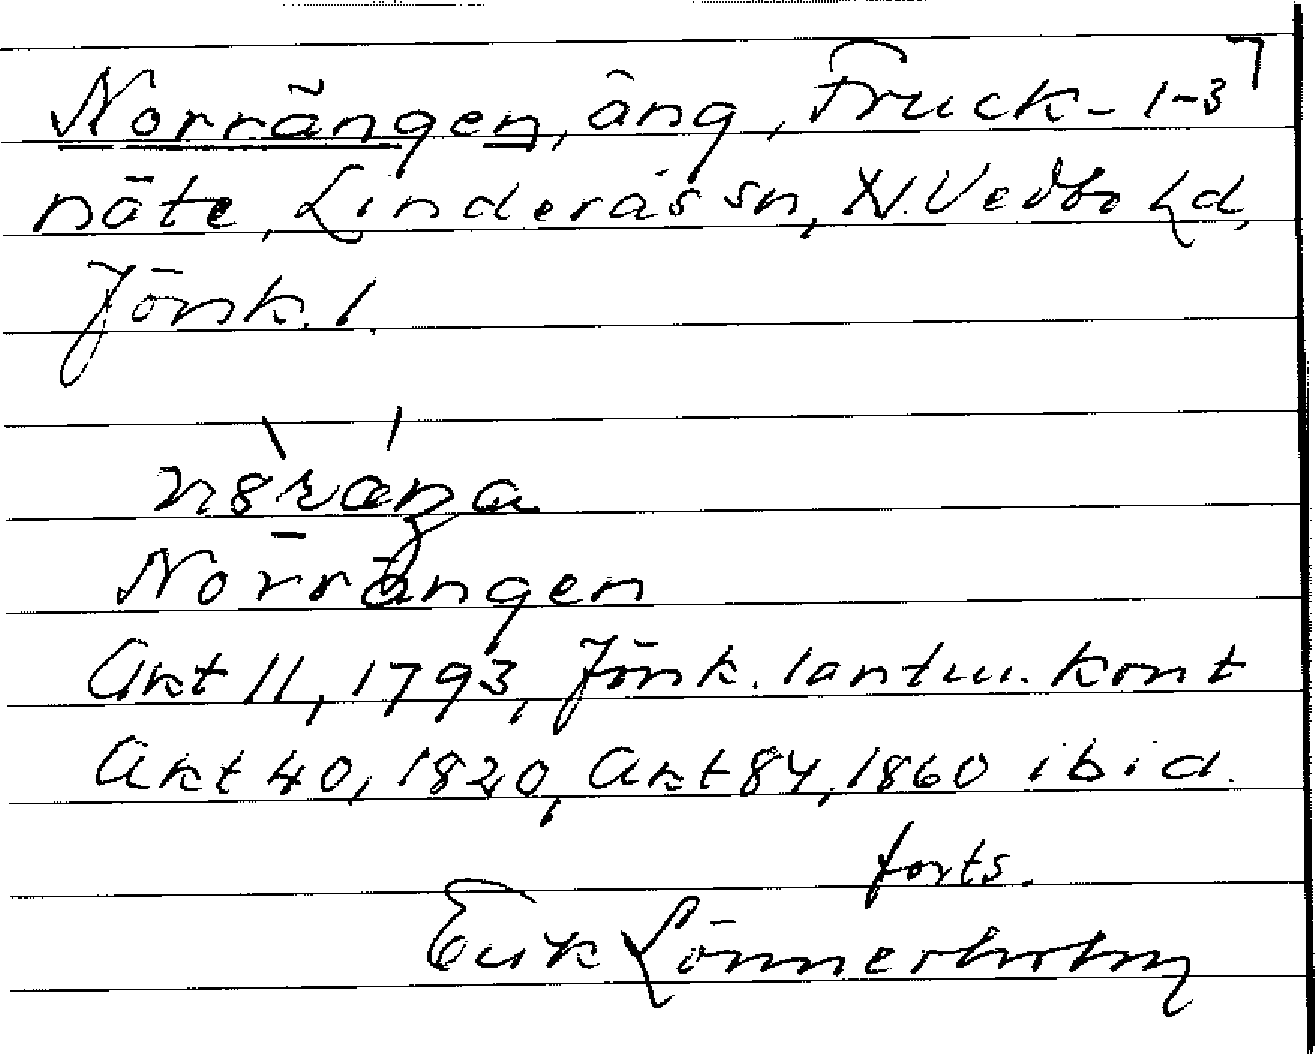 Norrängen, äng, Fruck- 1-3
näte, Linderås sn, N. Vedbo hd,
Jönk. l.
Norrängen
Akt 11, 1793, Jönk. lantm. kont
Akt 40, 1820, Akt 84, 1860 ibid.
forts.
Erik Lönnerholm